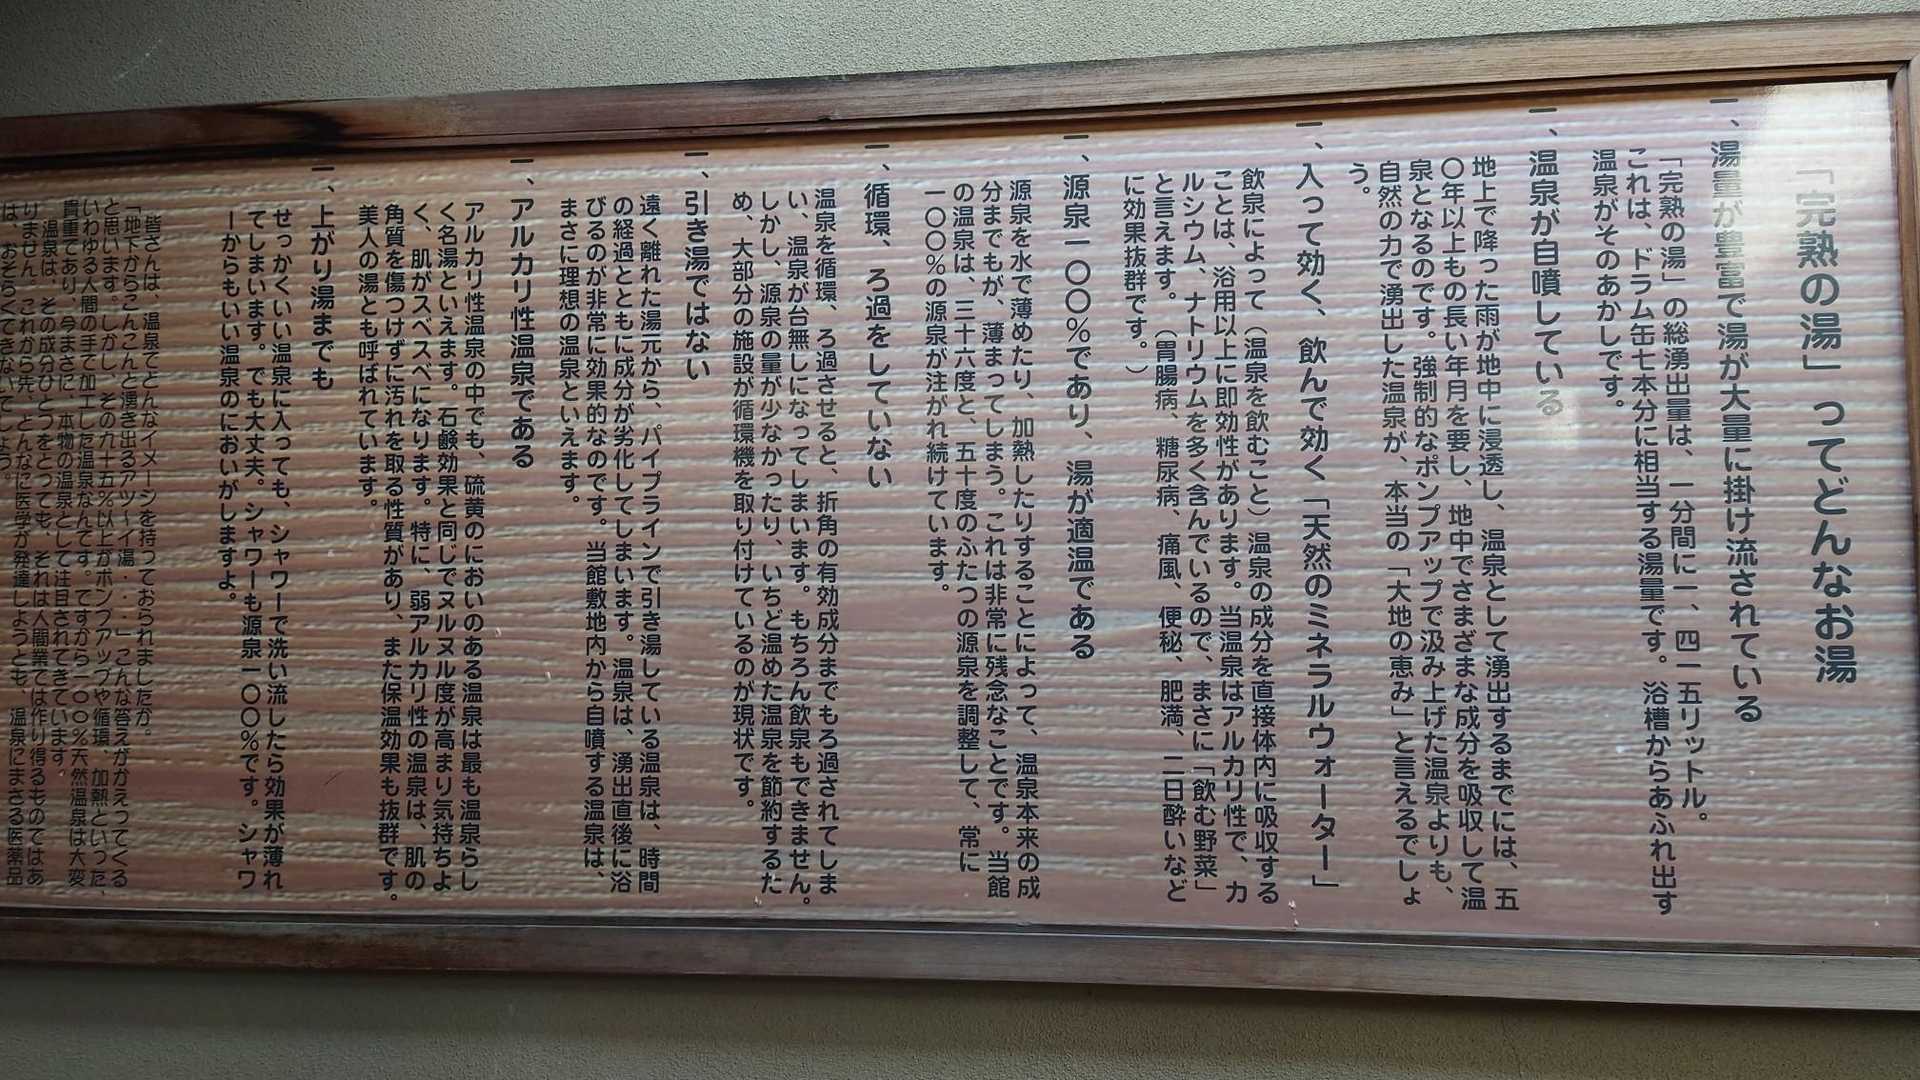 「完熟の湯」ってどんなお湯
一、湯量が豊富で湯が大量に掛け流されている
「完熟の湯」の総湧出量は、一分間に一、四一五リットル。
これは、ドラム缶七本分に相当する湯量です。浴槽からあふれ出す
温泉がそのあかしです。
一、温泉が自噴している
地上で降った雨が地中に浸透し、温泉として湧出するまでには、五
〇年以上もの長い年月を要し、地中でさまざまな成分を吸収して温
泉となるのです。強制的なポンプアップで汲み上げた温泉よりも、
自然の力で湧出した温泉が、本当の「大地の恵み」と言えるでしょ
う。
一、入って効く、飲んで効く「天然のミネラルウォーター」
飲泉によって（温泉を飲むこと）温泉の成分を直接体内に吸収する
ことは、浴用以上に即効性があります。当温泉はアルカリ性で、カ
ルシウム、ナトリウムを多く含んでいるので、まさに「飲む野菜」
と言えます。（胃腸病、糖尿病、痛風、便秘、肥満、二日酔いなど
に効果抜群です。）
一、源泉一〇〇％であり、湯が適温である
源泉を水で薄めたり、加熱したりすることによって、温泉本来の成
分までもが、薄まってしまう。これは非常に残念なことです。当館
の温泉は、三十六度と、五十度のふたつの源泉を調整して、常に
一〇〇％の源泉が注がれ続けています。
一、循環、ろ過をしていない
温泉を循環、ろ過させると、折角の有効成分までもろ過されてしま
い、温泉が台無しになってしまいます。もちろん飲泉もできません。
しかし、源泉の量が少なかったり、いちど温めた温泉を節約するた
め、大部分の施設が循環機を取り付けているのが現状です。
一、引き湯ではない
遠く離れた湯元から、パイプラインで引き湯している温泉は、時間
の経過とともに成分が劣化してしまいます。温泉は、湧出直後に浴
びるのが非常に効果的なのです。当館敷地内から自噴する温泉は、
まさに理想の温泉といえます。
一、アルカリ性温泉である
アルカリ性温泉の中でも、硫黄のにおいのある温泉は最も温泉らし
く名湯といえます。石鹸効果と同じでヌルヌル度が高まり気持ちよ
く、肌がスベスベになります。特に、弱アルカリ性の温泉は、肌の
角質を傷つけずに汚れを取る性質があり、また保温効果も抜群です。
美人の湯とも呼ばれています。
一、上がり湯までも
せっかくいい温泉に入っても、シャワーで洗い流したら効果が薄れ
てしまいます。でも大丈夫。シャワーも源泉一〇〇％です。シャワ
ーからもいい温泉のにおいがしますよ。
皆さんは、温泉でどんなイメージを持っておられましたか。
「地下からこんこんと湧き出るアツーイ湯・・・」こんな答えがかえってくる
と思います。しかし、その九十五％以上がポンプアップや循環、加熱といった、
いわゆる人間の手で加工した温泉なんです。ですから一〇〇％天然温泉は大変
貴重であり、今まさに、本物の温泉として注目されてきています。
温泉は、その成分ひとつをとっても、それは人間業では作り得るものではあ
りません。これから先、どんなに医学が発達しようとも、温泉にまさる医薬品
は、おそらくできないでしょう。